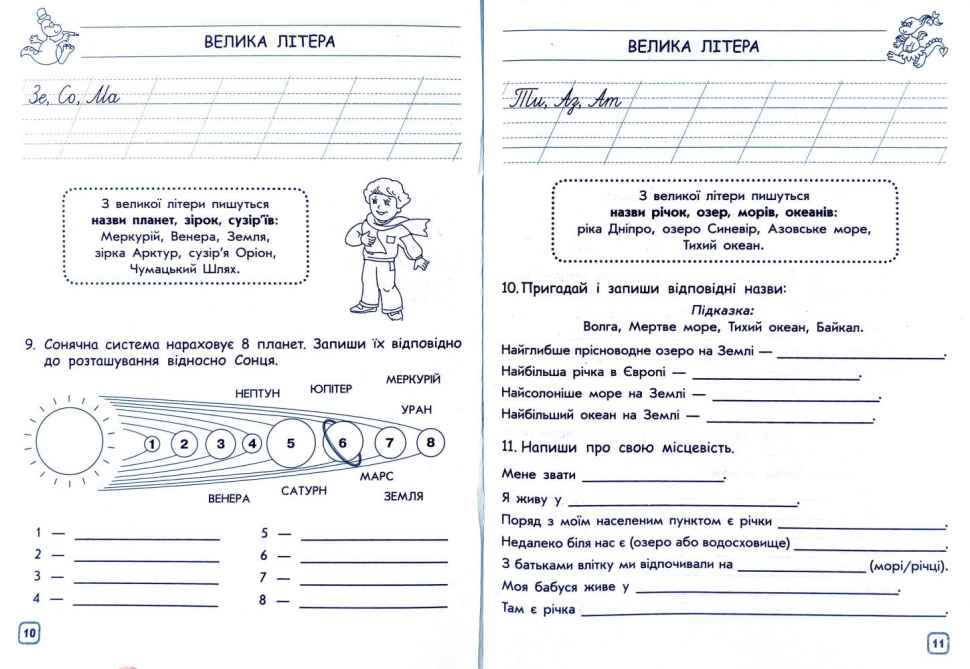 ВЕЛИКА ЛІТЕРА
Зе, Со, Ма
З великої літери пишуться
назви планет, зірок, сузір'їв:
Меркурій, Венера, Земля,
зірка Арктур, сузір'я Оріон,
Чумацький Шлях.
9. Сонячна система нараховує 8 планет. Запиши їх відповідно
до розташування відносно Сонця.
МЕРКУРІЙ
НЕПТУН
ЮПІТЕР
УРАН
1 2 3 4 5 6 7 8
МАРС
ВЕНЕРА
САТУРН
ЗЕМЛЯ
1 —
2 —
3 —
4 —
5 —
6 —
7 —
8 —
10
ВЕЛИКА ЛІТЕРА
Ти, Аз, Ат
З великої літери пишуться
назви річок, озер, морів, океанів:
ріка Дніпро, озеро Синевір, Азовське море,
Тихий океан.
10. Пригадай і запиши відповідні назви:
Підказка:
Волга, Мертве море, Тихий океан, Байкал.
Найглибше прісноводне озеро на Землі — .
Найбільша річка в Європі — .
Найсолоніше море на Землі — .
Найбільший океан на Землі — .
11. Напиши про свою місцевість.
Мене звати .
Я живу у .
Поряд з моїм населеним пунктом є річки .
Недалеко біля нас є (озеро або водосховище) .
З батьками влітку ми відпочивали на (морі/річці).
Моя бабуся живе у .
Там є річка .
11